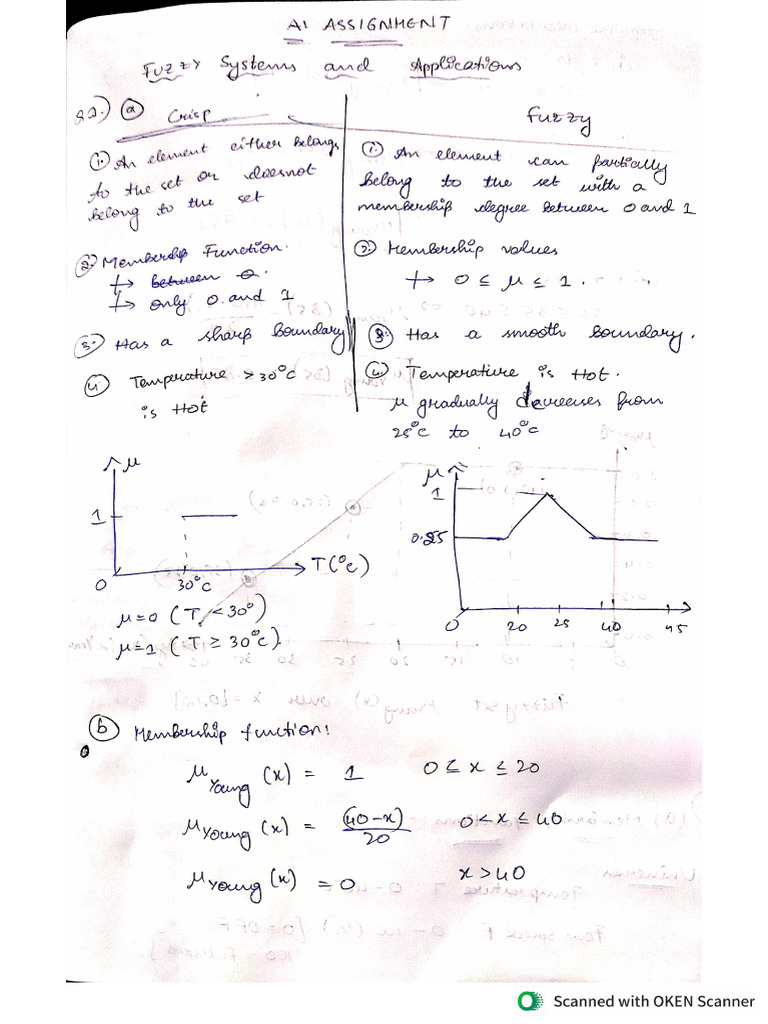 AI ASSIGNMENT
Fuzzy Systems and Applications
Q2.) (a) Crisp
Fuzzy
(1.) An element either belongs
to the set or doesnot
belong to the set
(1.) An element can partially
belong to the set with a
membership degree between 0 and 1
(2.) Membership Function.
↦ between 0.
↦ only 0 and 1
(2) Membership values
↦ 0 ≤ μ ≤ 1.
(3.) Has a sharp boundary
(3.) Has a smooth boundary.
(4) Temperature > 30°C
is Hot
(4) Temperature is Hot.
μ gradually from
25°C to 40°C
μ
1
0
30°C
T(°C)
μ=0 (T < 30°)
μ=1 (T ≥ 30°C).
μ
1
0.25
0 20 25 40 45
(b) Membership function:
μYoung (x) = 1 0 ≤ x ≤ 20
μYoung (x) = (40-x)/20 0 < x ≤ 40
μYoung (x) = 0 x > 40
Scanned with OKEN Scanner